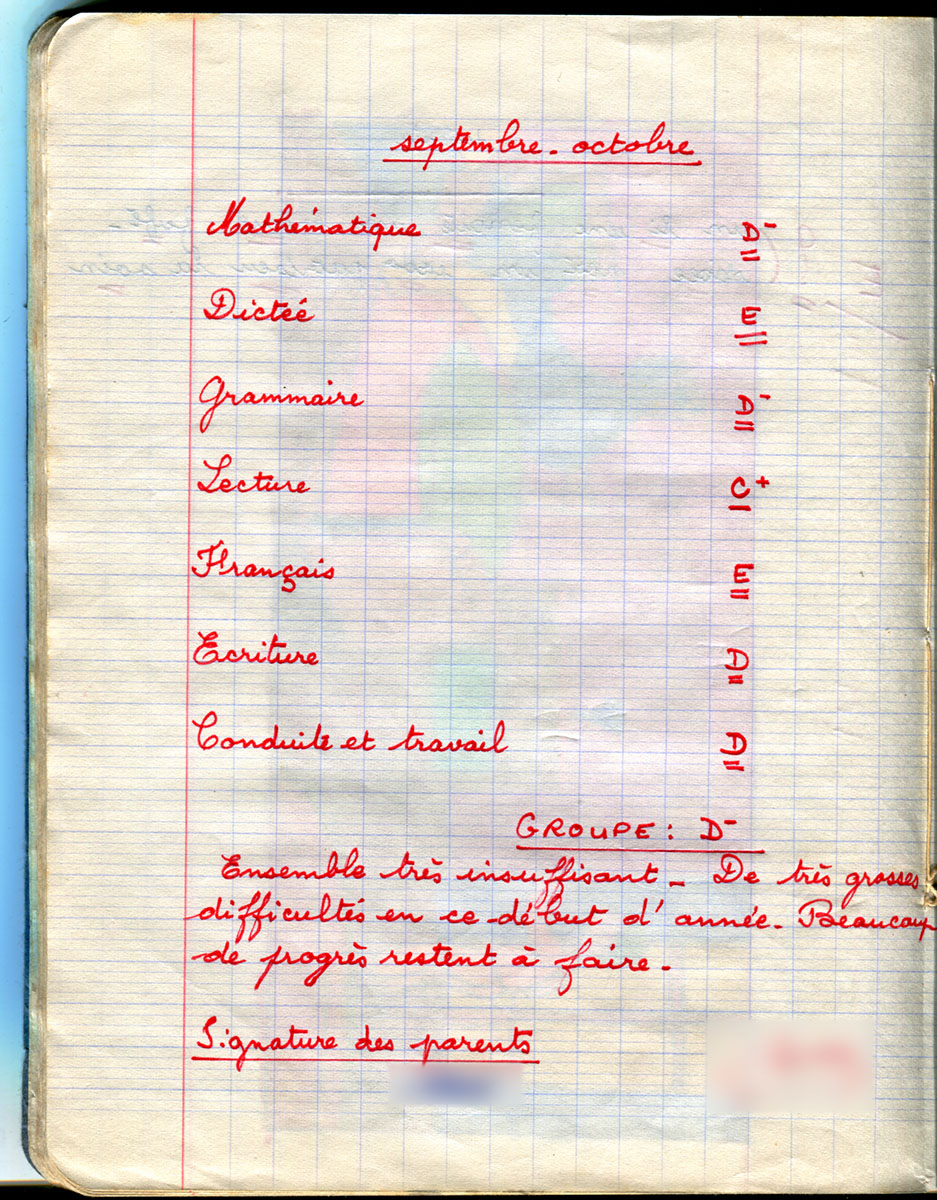 septembre - octobre
Mathématique
Dictée E
Grammaire
Lecture C+
Français E
Ecriture
Conduite et travail
GROUPE : D-
Ensemble très insuffisant - De très grosses
difficultés en ce début d'année. Beaucoup
de progrès restent à faire.
Signature des parents